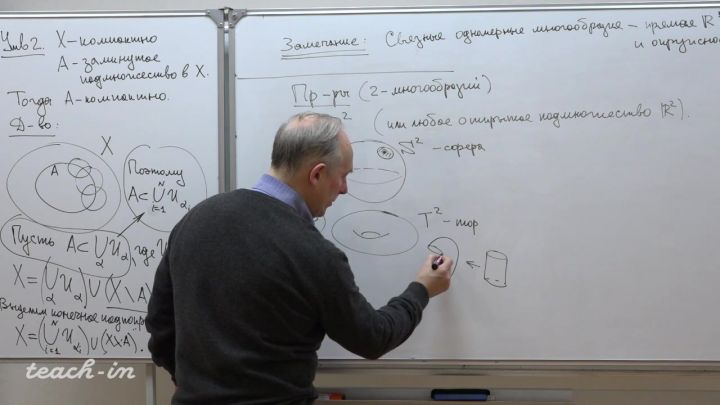 Утв 2. X - компактно
A - замкнутое
подмножество в X.
Тогда A - компактно.
Д-во:
X
A
Поэтому
A ⊂ ⋃ᵢ₌₁ᴺ U_αᵢ
Пусть A ⊂ ⋃_α U_α, где U
X = (⋃_α U_α) ∪ (X \ A)
Выделим конечное подпокр
X = (⋃ᵢ₌₁ᴺ U_αᵢ) ∪ (X \ A).
Замечание: Связные одномерные многообразия - прямая ℝ¹
и окружнос
Пр-ры (2-многообразий)
2
(или любое открытое подмножество ℝ²).
S² - сфера
T² - тор
teach-in